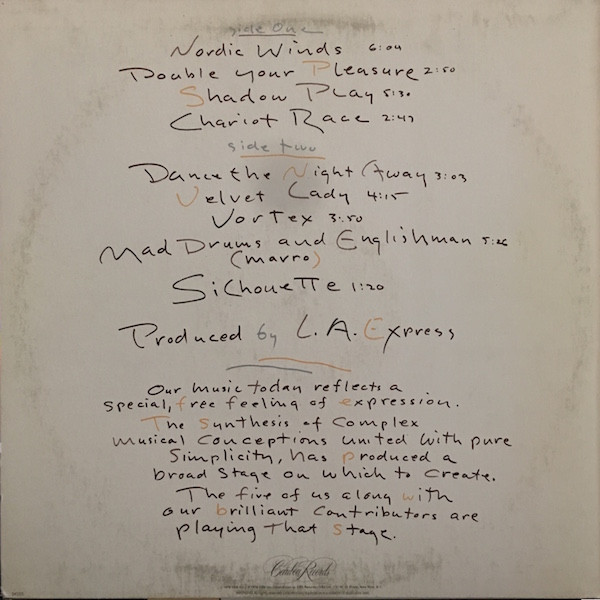 side One
Nordic Winds 6:04
Double your Pleasure 2:50
Shadow Play 5:30
Chariot Race 2:47
side two
Dance the Night Away 3:03
Velvet Lady 4:15
Vortex 3:50
Mad Drums and Englishman 5:26
(Mavro)
Silhouette 1:20
Produced by L.A. Express
Our music today reflects a
special, free feeling of expression.
The Synthesis of Complex
musical conceptions united with pure
Simplicity, has produced a
broad Stage on which to Create.
The five of us along with
our brilliant Contributors are
playing That Stage.
Caribou Records